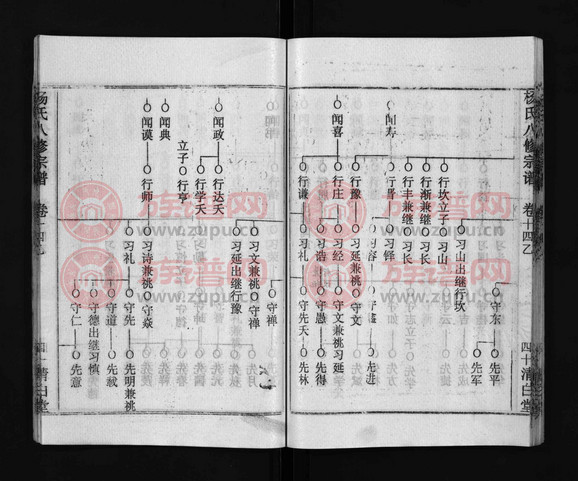 杨氏八修宗谱 卷十四乙
四十 清白堂
闻寿
闻喜
行坎立子
行渐兼继
行丰兼继
行晋
行豫
行庄
行谦
习山出继行坎
习山
习长
习长
习铎
习容
习延兼祧
习经
习浩
习礼
守东
守文
守文兼祧习延
守愚
守先天
先平
先军
先进
先得
先林
闻政
闻典
闻谟
行达天
行学天
立子
行亨
行师
习文兼祧
习延出继行豫
习诗兼祧
习礼
守禅
守禅
守焱
守先
守道
守德出继习慎
守仁
先明兼祧
先弑
先意
杨氏八修宗谱 卷十四乙
清白堂
族谱网
www.zupu.cn
族谱网
www.zupu.cn